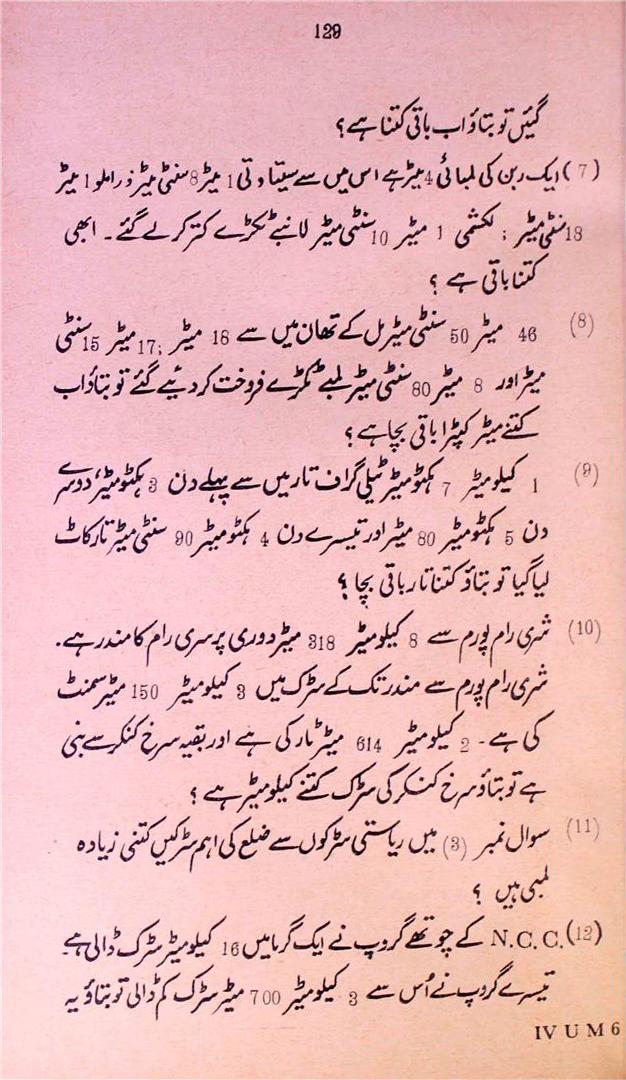 129
گئیں تو بتاؤ اب باقی کتنا ہے؟
(7) ایک ربن کی لمبائی 4 میٹر ہے اس میں سے سیتا وتی 1 میٹر 8 سنٹی میٹر ; راملو 1 میٹر
18 سنٹی میٹر ; لکشمی 1 میٹر 10 سنٹی میٹر لانبے ٹکڑے کتر کر لے گئے۔ ابھی
کتنا باقی ہے ؟
(8) 46 میٹر 50 سنٹی میٹر مل کے تھان میں سے 18 میٹر ; 17 میٹر 15 سنٹی
میٹر اور 8 میٹر 80 سنٹی میٹر لمبے ٹکڑے فروخت کر دیئے گئے تو بتاؤ اب
کتنے میٹر کپڑا باقی بچا ہے؟
(9) 1 کیلومیٹر 7 ہکٹومیٹر ٹیلی گراف تار میں سے پہلے دن 3 ہکٹومیٹر، دوسرے
دن 5 ہکٹومیٹر 80 میٹر اور تیسرے دن 4 ہکٹومیٹر 90 سنٹی میٹر تار کاٹ
لیا گیا تو بتاؤ کتنا تار باقی بچا ؟
(10) شری رام پورم سے 8 کیلومیٹر 318 میٹر دوری پر سری رام کا مندر ہے۔
شری رام پورم سے مندر تک کے سڑک میں 3 کیلومیٹر 150 میٹر سمنٹ
کی ہے۔ 2 کیلومیٹر 614 میٹر ٹار کی ہے اور بقیہ سرخ کنکر سے بنی
ہے تو بتاؤ سرخ کنکر کی سڑک کتنے کیلومیٹر ہے ؟
(11) سوال نمبر (3) میں ریاستی سڑکوں سے ضلع کی اہم سڑکیں کتنی زیادہ
لمبی ہیں ؟
(12) N.C.C. کے چوتھے گروپ نے ایک گرما میں 16 کیلومیٹر سڑک ڈالی ہے۔
تیسرے گروپ نے اُس سے 3 کیلومیٹر 700 میٹر سڑک کم ڈالی تو بتاؤ یہ
IV U M 6